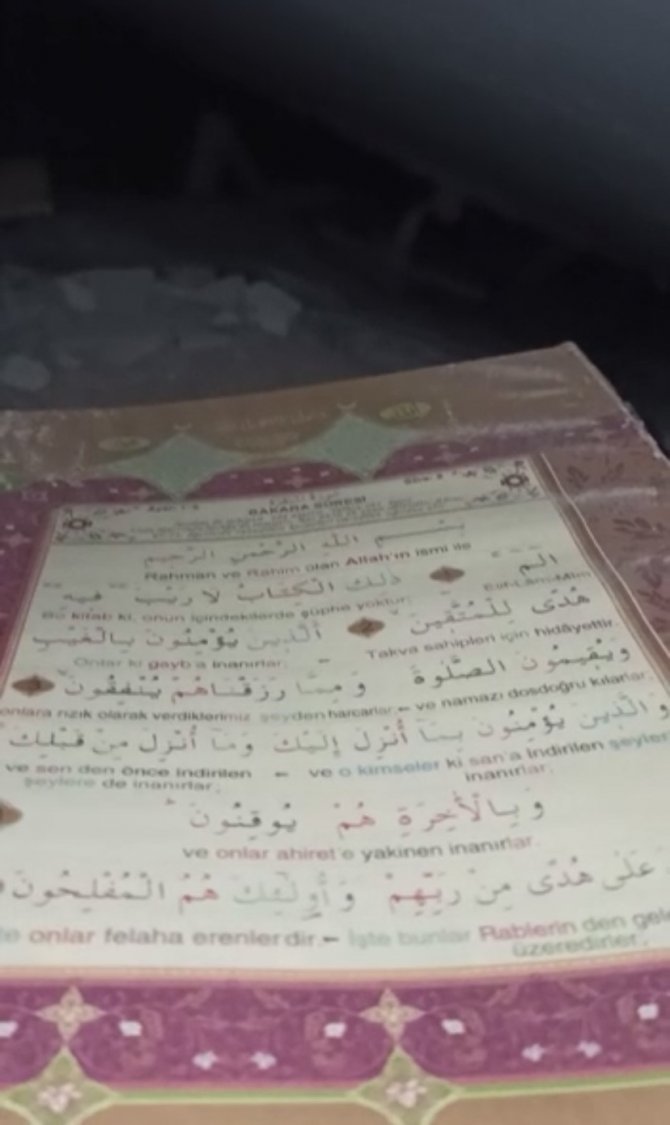 BAKARA SÛRESİ
بِسْمِ اللّٰهِ الرَّحْمٰنِ الرَّحِيمِ
Rahman ve Rahim olan Allah'ın ismi ile
الٓمٓ ذٰلِكَ الْكِتَابُ لَا رَيْبَ فِيهِ
Elif-Lâm-Mîm Bu kitab ki, onun içindekilerde şüphe yoktur.
هُدًى لِلْمُتَّقِينَ اَلَّذِينَ يُؤْمِنُونَ بِالْغَيْبِ
Takva sahipleri için hidâyettir. Onlar ki gayb'a inanırlar.
وَيُقِيمُونَ الصَّلٰوةَ وَ مِمَّا رَزَقْنَاهُمْ يُنْفِقُونَ
ve namazı dosdoğru kılarlar. onlara rızık olarak verdiklerimiz şeyden harcarlar.
وَ الَّذِينَ يُؤْمِنُونَ بِمَا أُنْزِلَ إِلَيْكَ وَمَا أُنْزِلَ مِنْ قَبْلِكَ
ve o kimseler ki san'a indirilen şeylere inanırlar. ve sen den önce indirilen şeylere de inanırlar.
وَ بِالْأَخِرَةِ هُمْ يُوقِنُونَ
ve onlar ahiret'e yakinen inanırlar.
عَلٰى هُدًى مِنْ رَبِّهِمْ وَ أُولٰئِكَ هُمُ الْمُفْلِحُونَ
İşte bunlar Rablerin den üzeredirler. onlar felaha erenlerdir.